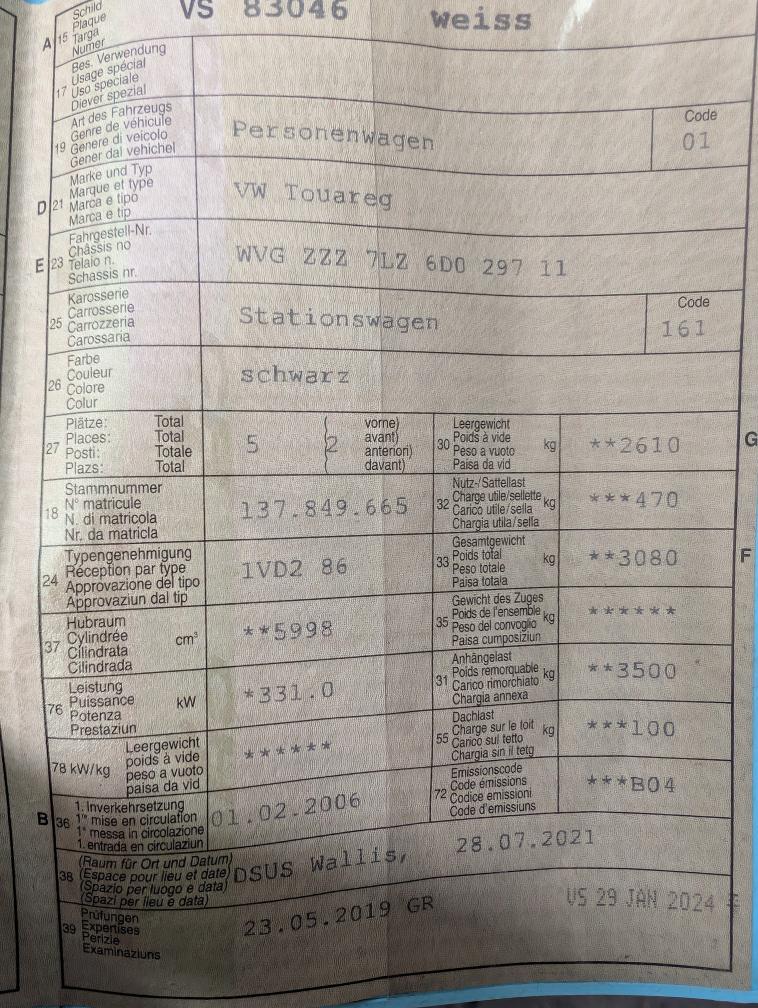 Schild
Plaque
A 15 Targa VS 83046 weiss
Numer
Bes. Verwendung
Usage spécial
17 Uso speciale
Diever spezial
Art des Fahrzeugs
Genre de véhicule
19 Genere di veicolo Personenwagen Code 01
Gener dal vehichel
Marke und Typ
Marque et type
D 21 Marca e tipo VW Touareg
Marca e tip
Fahrgestell-Nr.
Châssis no
E 23 Telaio n. WVG ZZZ 7LZ 6D0 297 11
Schassis nr.
Karosserie
Carrosserie
25 Carrozzeria Stationswagen Code 161
Carossaria
Farbe
Couleur
26 Colore schwarz
Colur
Plätze: Total
Places: Total
27 Posti: Totale 5 (2
Plazs: Total
vorne)
avant)
anteriori)
davant)
Leergewicht
30 Poids à vide kg **2610 G
Peso a vuoto
Paisa da vid
Stammnummer
N° matricule
18 N. di matricola 137.849.665
Nr. da matricla
Nutz-/Sattellast
32 Charge utile/sellette kg ***470
Carico utile/sella
Chargia utila/sella
Typengenehmigung
Réception par type
24 Approvazione del tipo 1VD2 86
Approvaziun dal tip
Gesamtgewicht
33 Poids total kg **3080 F
Peso totale
Paisa totala
Hubraum
Cylindrée
37 Cilindrata cm³ **5998
Cilindrada
Gewicht des Zuges
Poids de l'ensemble
35 Peso del convoglio kg ******
Paisa cumposiziun
Leistung
Puissance
76 Potenza kW *331.0
Prestaziun
Anhängelast
Poids remorquable
31 Carico rimorchiato kg **3500
Chargia annexa
Leergewicht
poids à vide
78 kW/kg peso a vuoto ******
paisa da vid
Dachlast
Charge sur le toit
55 Carico sul tetto kg ***100
Chargia sin il tetg
1. Inverkehrsetzung
B 36 1re mise en circulation 01.02.2006
1a messa in circolazione
1. entrada en circulaziun
Emissionscode
Code émissions
72 Codice emissioni ***B04
Code d'emissiuns
(Raum für Ort und Datum)
38 (Espace pour lieu et date) DSUS Wallis, 28.07.2021
(Spazio per luogo e data)
(Spazi per lieu e data)
Prüfungen
39 Expertises 23.05.2019 GR VS 29 JAN 2024
Perizie
Examinaziuns